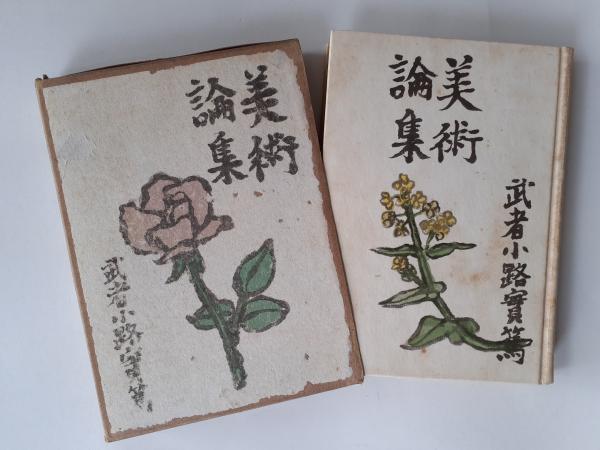 美術
論集
武者小路實篤
美術
論集
武者小路實篤